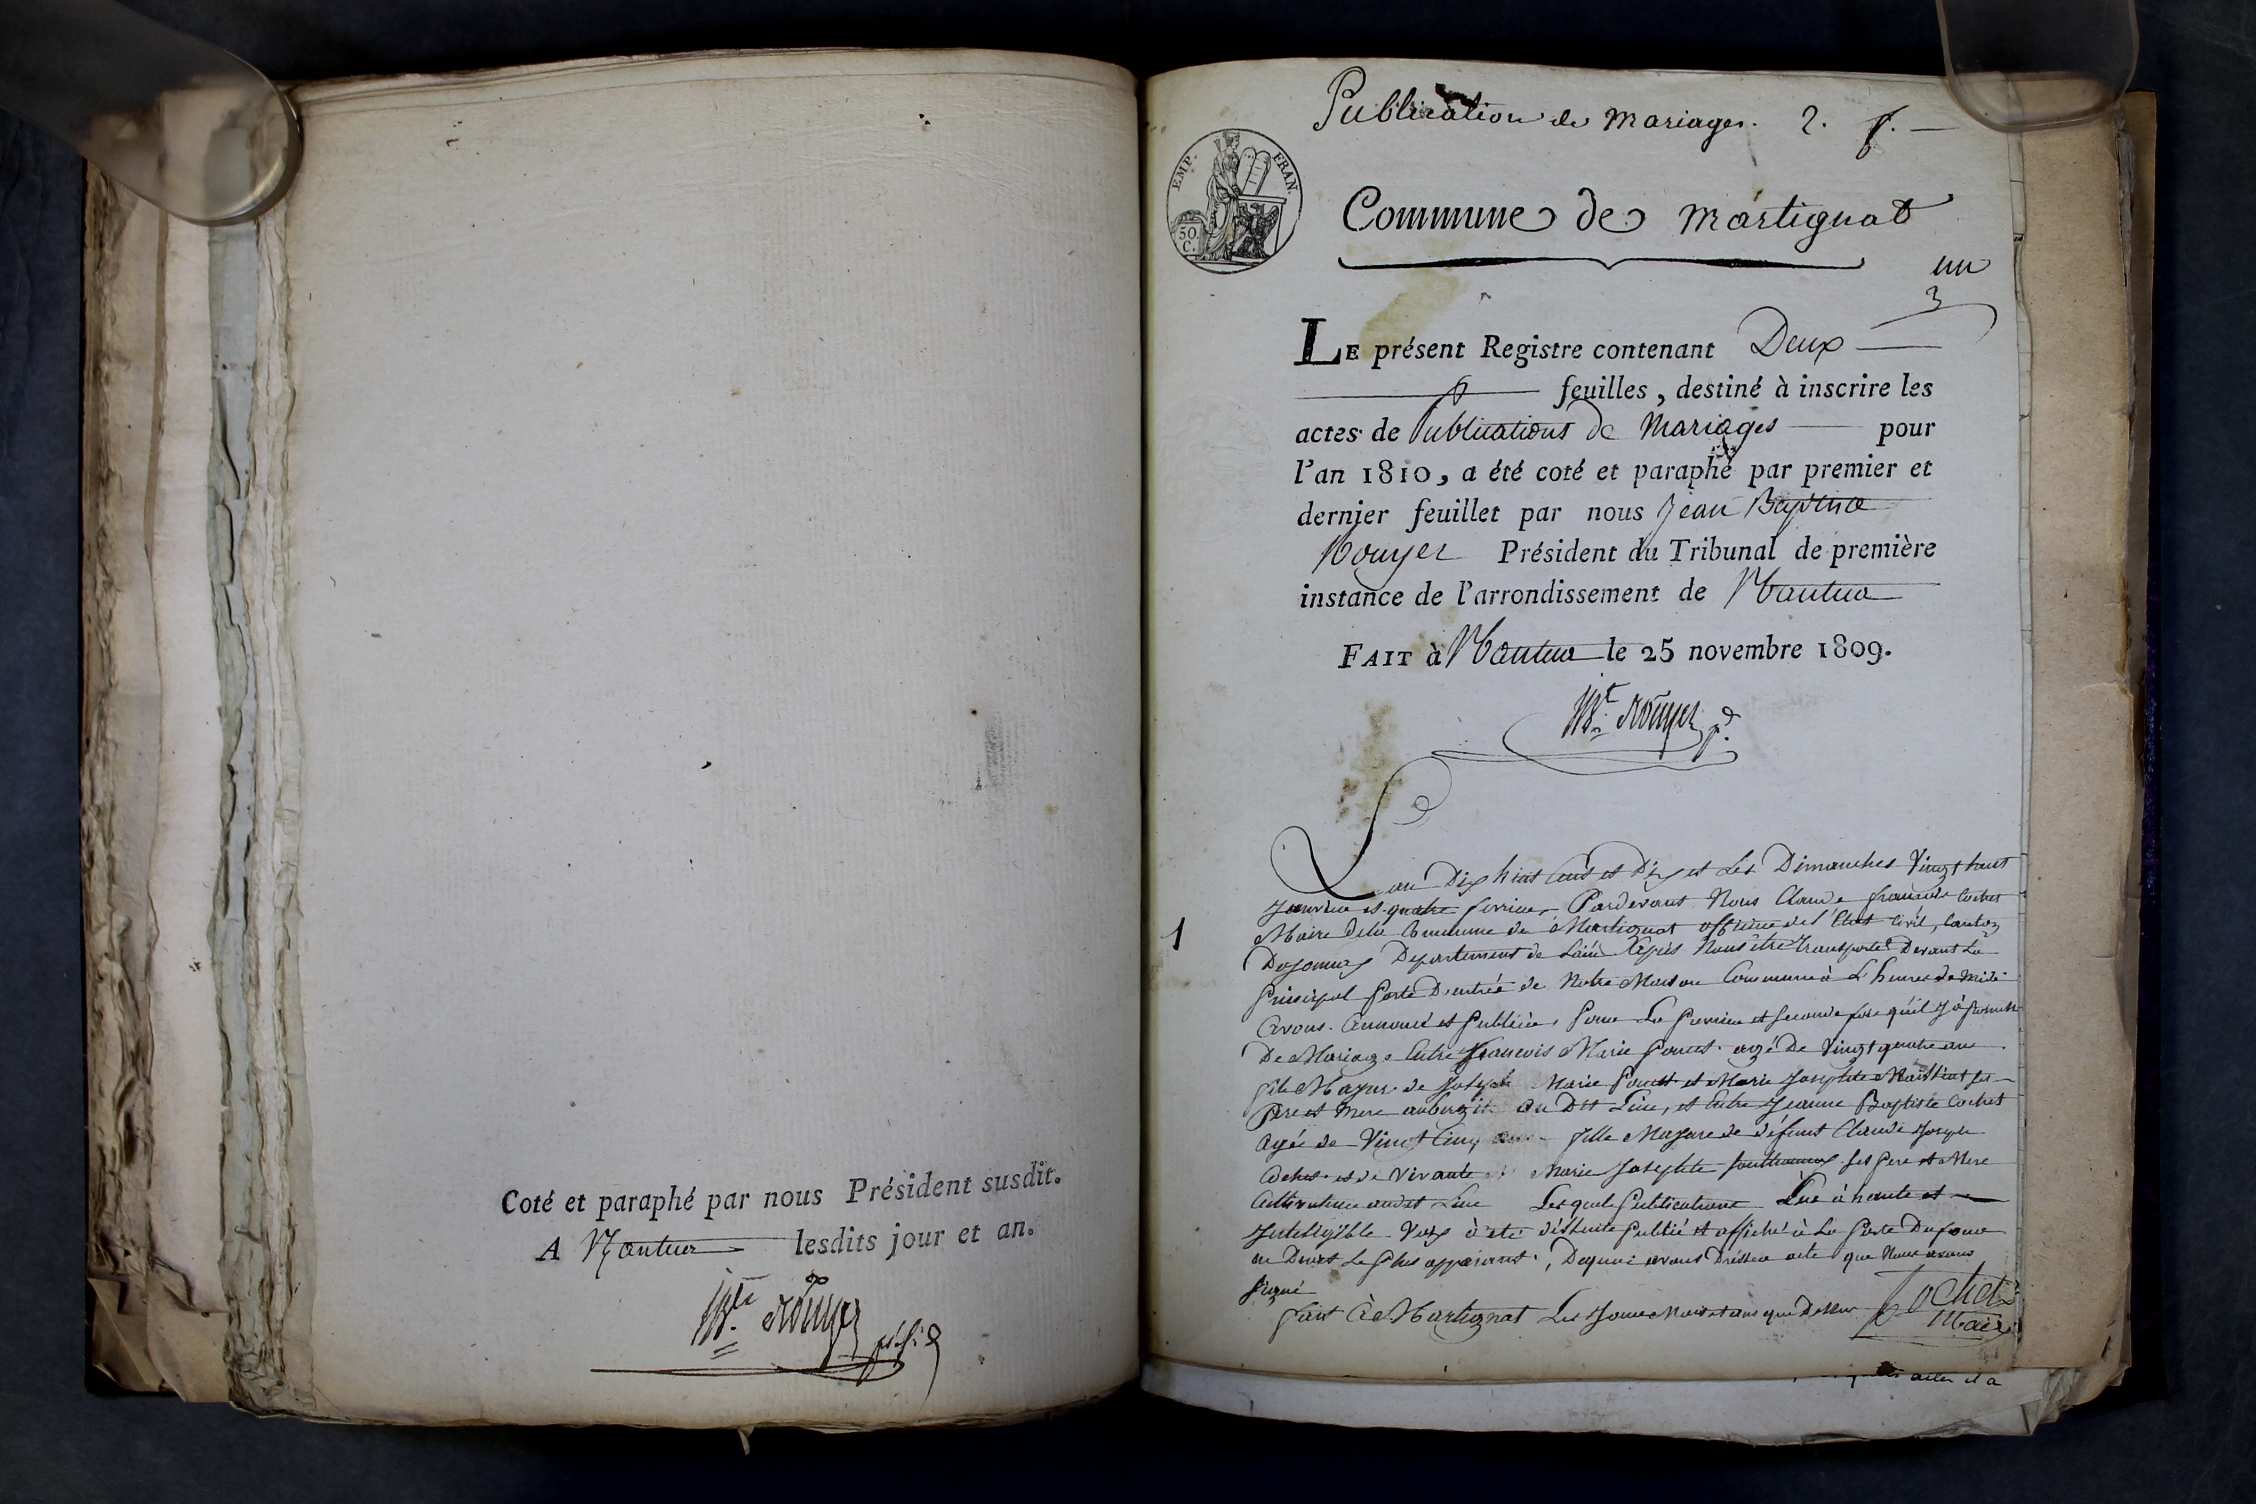 Coté et paraphé par nous Président susdit.
A Nantua lesdits jour et an.
JBte Rouyer présid
Publication de Mariages. 2. f.
EMP. FRAN.
50 C.
Commune de Martignat
un
LE présent Registre contenant Deux
feuilles, destiné à inscrire les
actes de Publications de Mariages pour
l'an 1810, a été coté et paraphé par premier et
dernier feuillet par nous Jean Baptiste
Rouyer Président du Tribunal de première
instance de l'arrondissement de Nantua
FAIT à Nantua le 25 novembre 1809.
JBte Rouyer pd.
1
L'an Dix huit Cent et Dix et Les Dimanches Vingt huit
Janvier et quatre fevrier, Pardevant Nous Claude françois Cochet
Maire de la Commune de Martignat officier de l'Etat Civil, Canton
Doyonnax Departement de Lain Apres Nous être transporté Devant La
Principal Porte D'entrée de Notre Maison Commune à L'heure de Midi
Avons Annoncé et Publiée, Pour La Premiere et Seconde fois qu'il y à Promesse
De Mariage Entre françois Marie Poncet agé De Vingt quatre ans
fils Majeur de Joseph Marie Poncet et Marie Josephte ses
Pere et Mere au Dit Lieu, et Entre Jeanne Baptiste Cochet
Agée de Vingt Cinq ans fille Majeure de défunt Claude Joseph
Cochet et de Vivante Marie Josephte ses Pere et Mere
Cultivateur audit Lieu Lesquels Publications Lue à haute et
Inteligible Voix à été ensuite Publié et affiché à La Porte Du four
au Devant Le Plus apparant, Dequoi avons Dressée acte que Nous avons
Signé
fait à Martignat Les Jour Mois et ans que Dessus Cochet
Maire